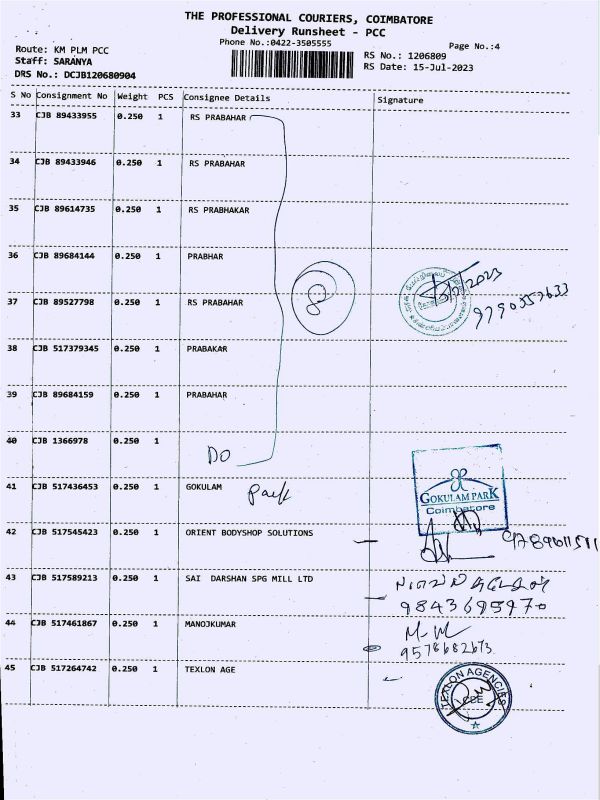 THE PROFESSIONAL COURIERS, COIMBATORE
Delivery Runsheet - PCC
Phone No.:0422-3505555
Page No.:4
Route: KM PLM PCC
Staff: SARANYA
DRS No.: DCJB120680904
RS No.: 1206809
RS Date: 15-Jul-2023
S No Consignment No Weight PCS Consignee Details Signature
33 CJB 89433955 0.250 1 RS PRABAHAR
34 CJB 89433946 0.250 1 RS PRABAHAR
35 CJB 89614735 0.250 1 RS PRABHAKAR
36 CJB 89684144 0.250 1 PRABHAR
37 CJB 89527798 0.250 1 RS PRABAHAR
8
38 CJB 517379345 0.250 1 PRABAKAR
39 CJB 89684159 0.250 1 PRABAHAR
40 CJB 1366978 0.250 1
DO
41 CJB 517436453 0.250 1 GOKULAM Park
GOKULAM PARK
Coimbatore
42 CJB 517545423 0.250 1 ORIENT BODYSHOP SOLUTIONS
43 CJB 517589213 0.250 1 SAI DARSHAN SPG MILL LTD
9843695970
44 CJB 517461867 0.250 1 MANOJKUMAR
9578682673
45 CJB 517264742 0.250 1 TEXLON AGE
TEXLON AGENCIES